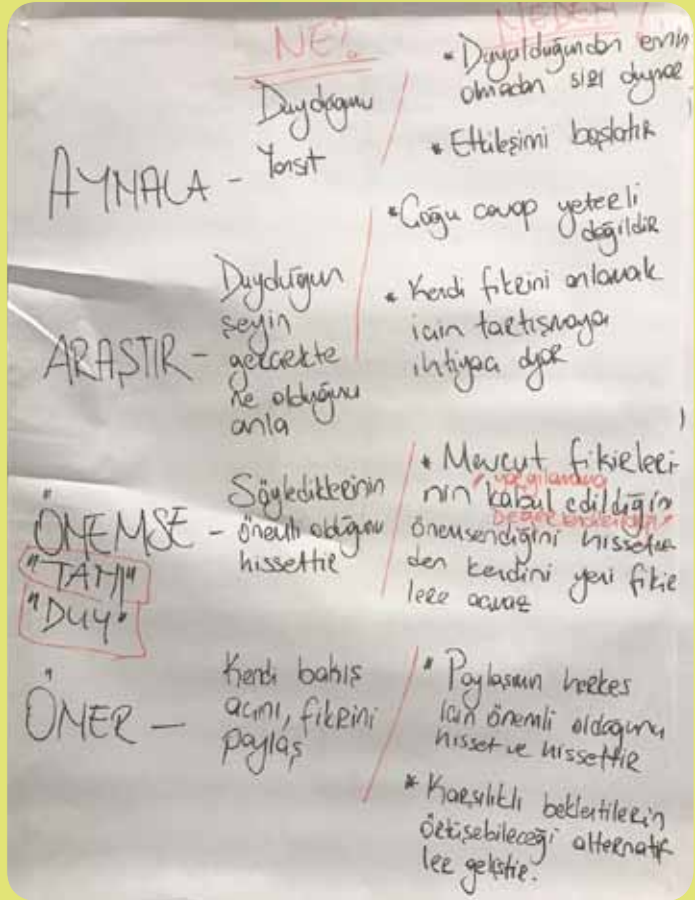 NE?
NEDEN?
AYNALA -
Duyduğunu
Yansıt
* Duyulduğundan emin
olmadan sizi duymaz
* Etkileşimi başlatır
ARAŞTIR -
Duyduğun
şeyin
gerçekte
ne olduğunu
anla
* Çoğu cevap yeterli
değildir
* Kendi fikrini anlamak
için tartışmaya
ihtiyacı
ÖNEMSE -
"TANI"
"DUY"
Söylediklerinin
önemli olduğunu
hissettir
* Mevcut fikirleri-
nin kabul edildiğin
önemsendiğini
den kendini yeni fikir
lere açmaz
ÖNER -
Kendi bakış
açını, fikrini
paylaş
* Paylaşımın herkes
için önemli olduğunu
hisset ve hissettir
* Karşılıklı beklentilerin
örtüşebileceği alternatif
ler geliştir.